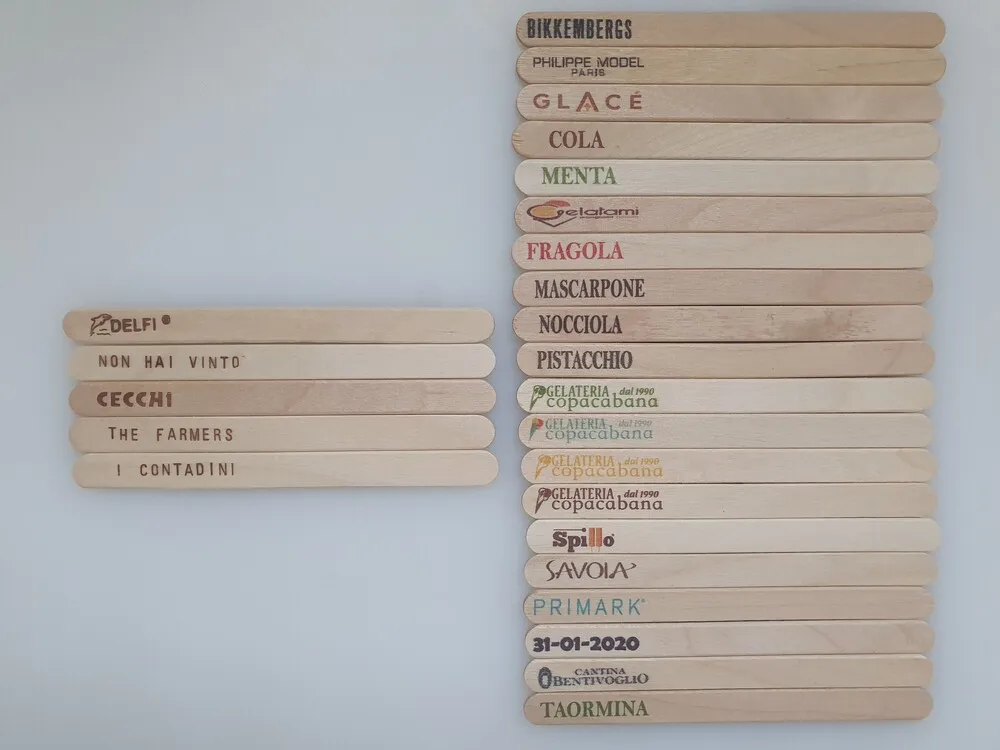 DELFI ®
NON HAI VINTO
CECCHI
THE FARMERS
I CONTADINI
BIKKEMBERGS
PHILIPPE MODEL
PARIS
GLACÉ
COLA
MENTA
Gelatami
FRAGOLA
MASCARPONE
NOCCIOLA
PISTACCHIO
GELATERIA dal 1990
copacabana
GELATERIA dal 1990
copacabana
GELATERIA dal 1990
copacabana
GELATERIA dal 1990
copacabana
Spillo
SAVOIA
PRIMARK®
31-01-2020
CANTINA
BENTIVOGLIO
TAORMINA